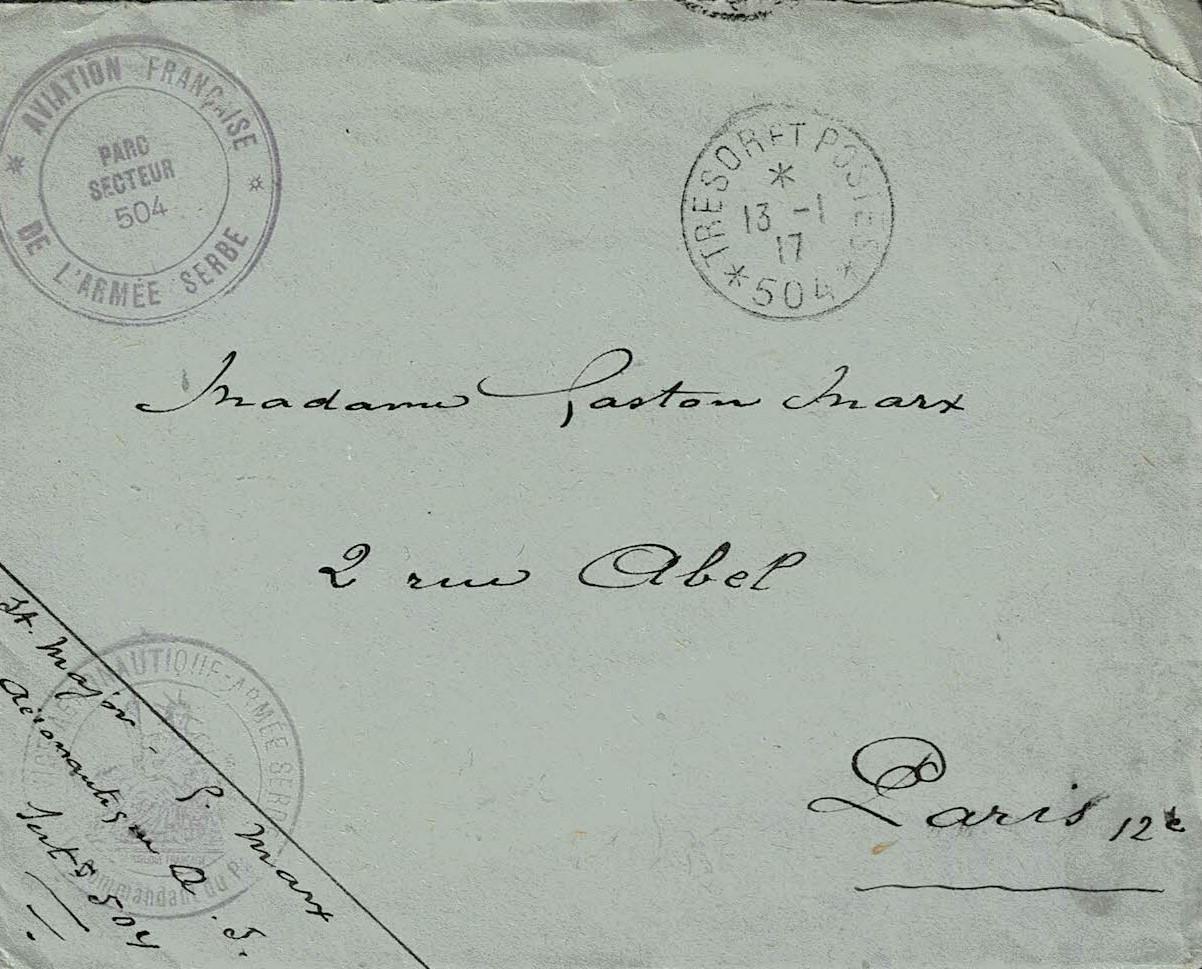 * AVIATION FRANÇAISE *
DE L'ARMÉE SERBE
PARC
SECTEUR
504
* TRESOR ET POSTES *
*
13 -1
17
504
Madame Gaston Marx
2 rue Abel
Paris 12e
Major - G. Marx
Aéronautique A. S.
Sect 504
AUTIQUE-ARMÉE SERBE
Commandant du P